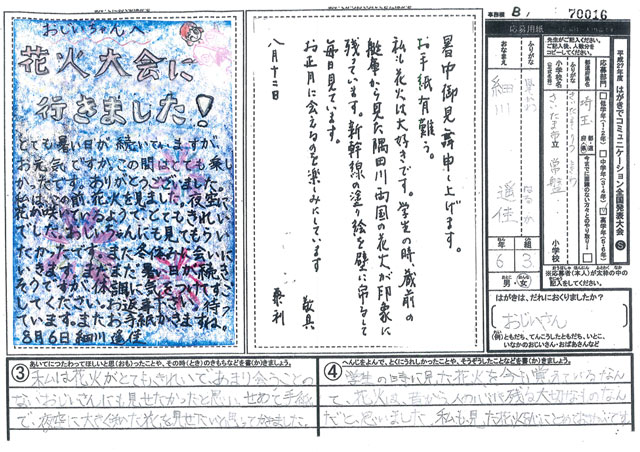 おじいちゃんへ
花火大会に
行きました!
とても暑い日が続いていますが、
お元気ですか。この間はとても楽し
かったです。ありがとうございました。
私はこの前、花火を見ました。夜空に
花が咲いているようで、とてもきれい
でした。おじいちゃんにも見てもらい
たかったです。また冬休みに会いに
いきます。まだまだ暑い日が続き
そうですが、体調に気をつけて、
してください。お返事
8月6日 細川遥佳
暑中御見舞申し上げます。
お手紙有難う。
私も花火は大好きです。学生の時、蔵前の
艇庫から見た隅田川両国の花火が印象に
残っています。新幹線の塗り絵を壁に吊るして
毎日見ています。
お正月に会えるのを楽しみにしています
敬具
八月十二日
事務欄 B
70016
平成27年度 はがきでコミュニケーション全国発表大会
応募用紙
先生がご記入ください。
応募部門
低学年(1・2年)
中学年(3・4年)
高学年(5・6年)
都道府県名
埼玉
ふりがな
小学校名
常盤
小学校
おなまえ
細川
遥佳
年
組
6
3
男・女
はがきは、だれにおくりましたか?
おじいさん
(例)ともだち、てんこうしたともだち、いとこ、
いなかのおじいさん・おばあさんなど
③
あいてにつたわってほしいと思(おも)ったことや、その時(とき)のきもちなどを書(か)きましょう。
私は花火がとてもきれいで、あまり会うことの
ないおじいさんにも見せたかったと思い、せめて手紙
で、夜空に大きく咲いた花を見せたいと思って書きました。
④
へんじをよんで、とくにうれしかったことや、そうぞうしたことなどを書(か)きましょう。
学生の時に見た花火を今も覚えているなん
て、花火は、昔から人の心に残る大切なものなん
だと、思いました。私も見た花火